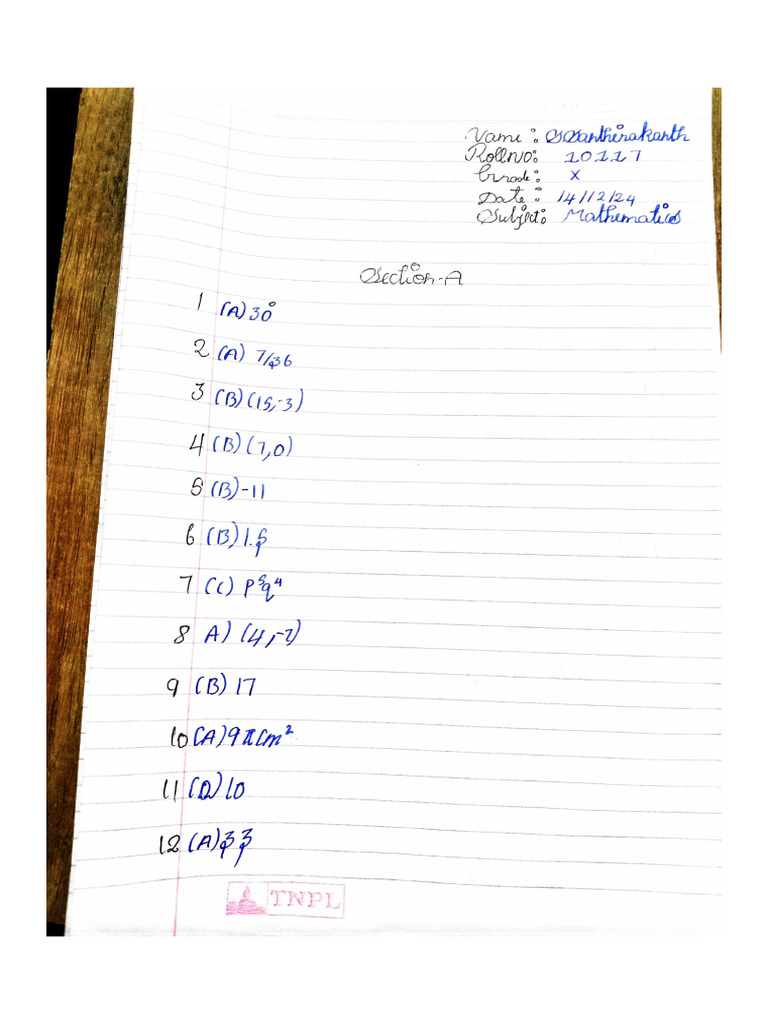 Name: S Santhirakanth
Roll No: 10117
Grade: X
Date: 14/12/24
Subject: Mathematics
Section-A
1 (A) 30°
2 (A) 7/36
3 (B) (15,-3)
4 (B) (7,0)
5 (B) -11
6 (B) 1.5
7 (C) p⁵q⁴
8 A) (4,-7)
9 (B) 17
10 (A) 9πcm²
11 (D) 10
12 (A) 33
TNPL